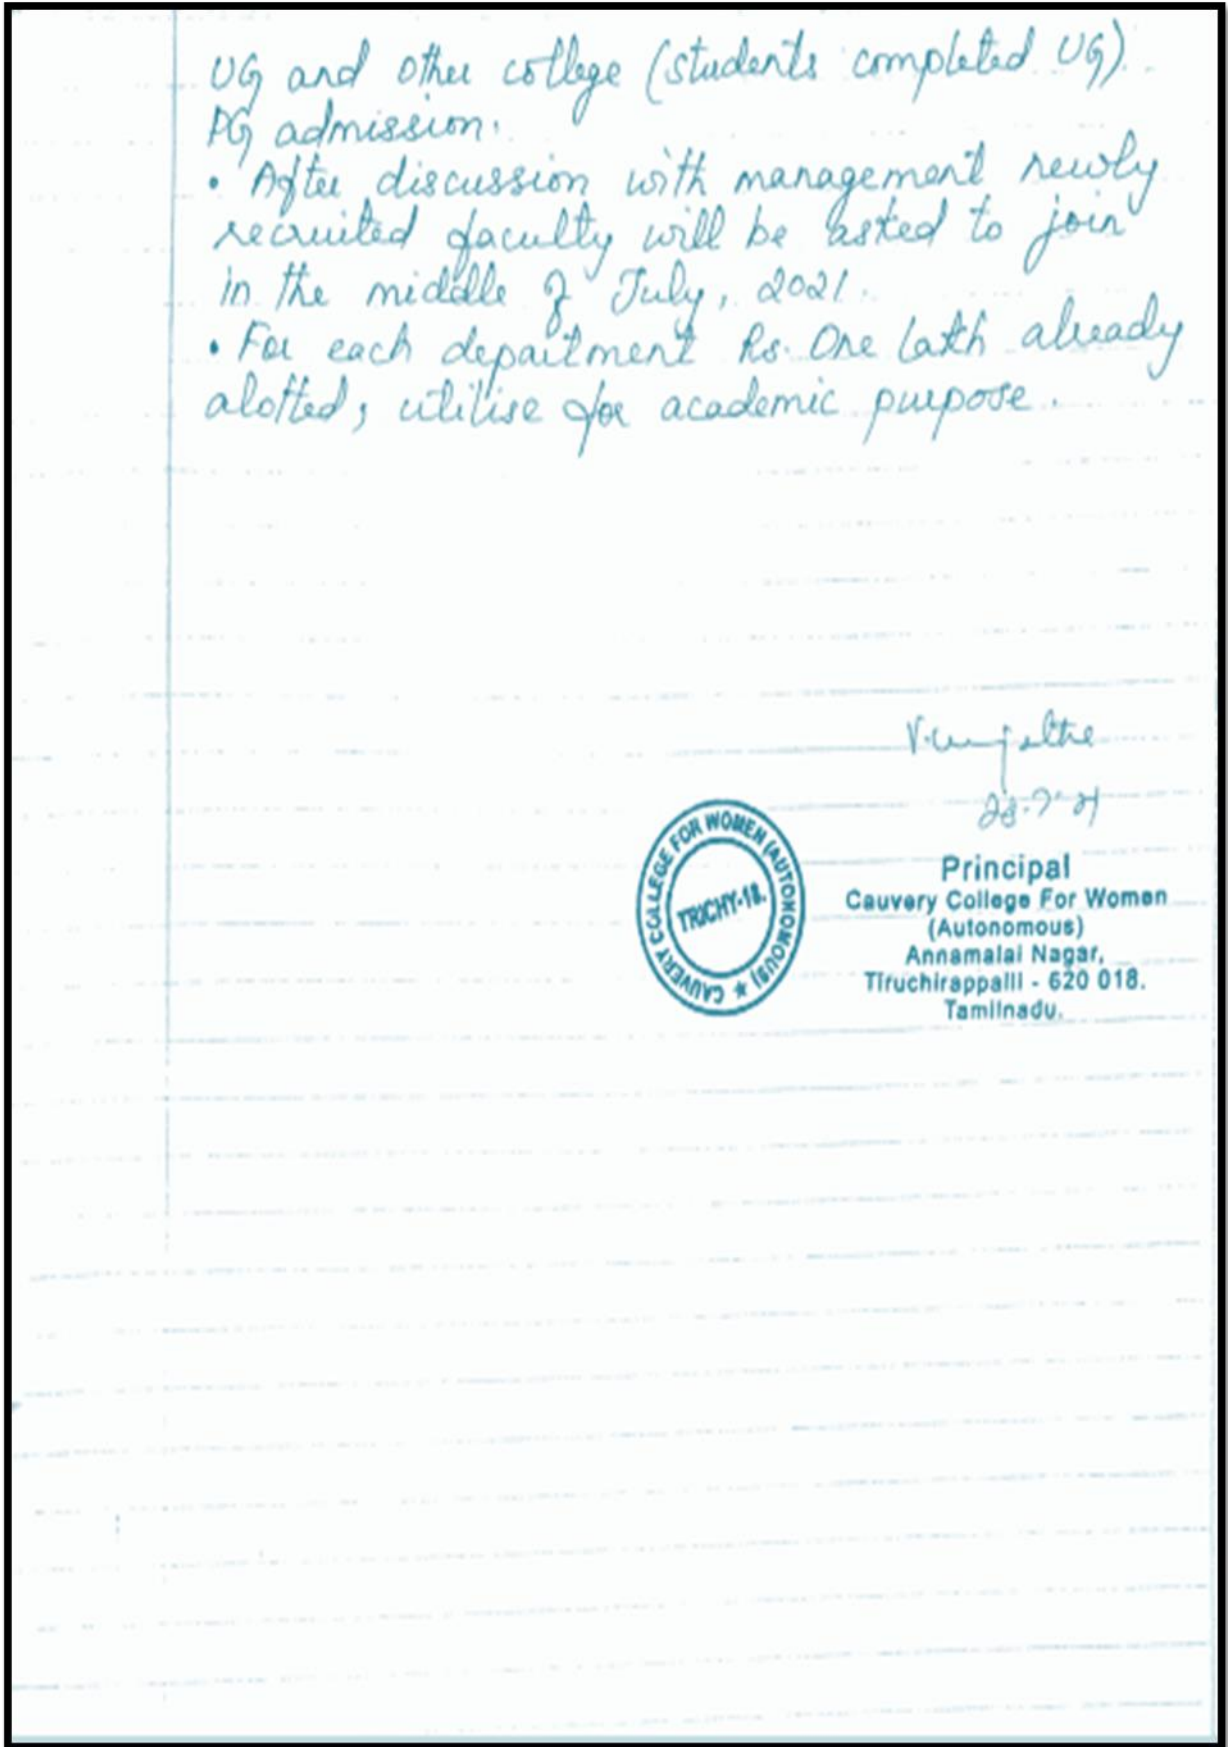 UG and other college (students completed UG).
PG admission.
• After discussion with management newly
recruited faculty will be asked to join
in the middle of July, 2021.
• For each department Rs. One lakh already
alotted, utilise for academic purpose.
CAUVERY COLLEGE FOR WOMEN (AUTONOMOUS) ★
TRICHY-18.
Principal
Cauvery College For Women
(Autonomous)
Annamalai Nagar,
Tiruchirappalli - 620 018.
Tamilnadu.